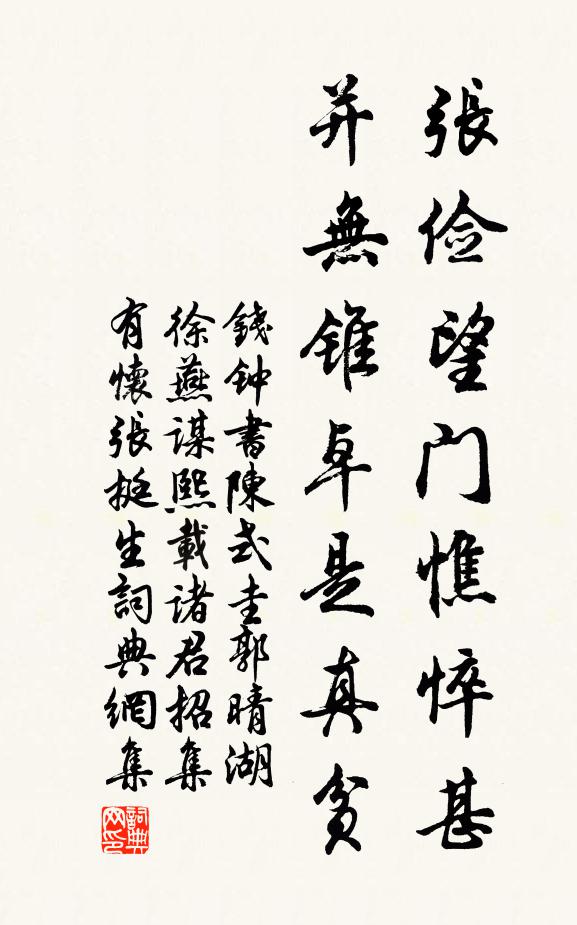 張儉望門憔悴甚
并無錐卓是真貧
錢钟書陳式圭郭晴湖
徐燕謀熙載諸君招集
有懷張挺生詞典網集
詞典网印